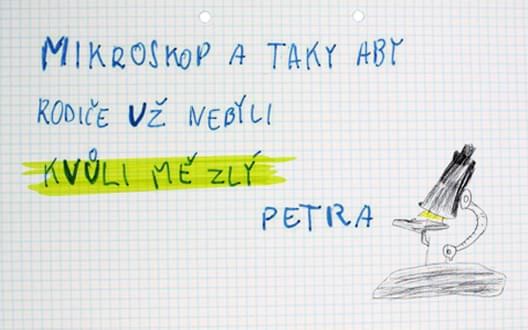 MIKROSKOP A TAKY ABY
RODIČE UŽ NEBYLI
KVŮLI MĚ ZLÝ
PETRA